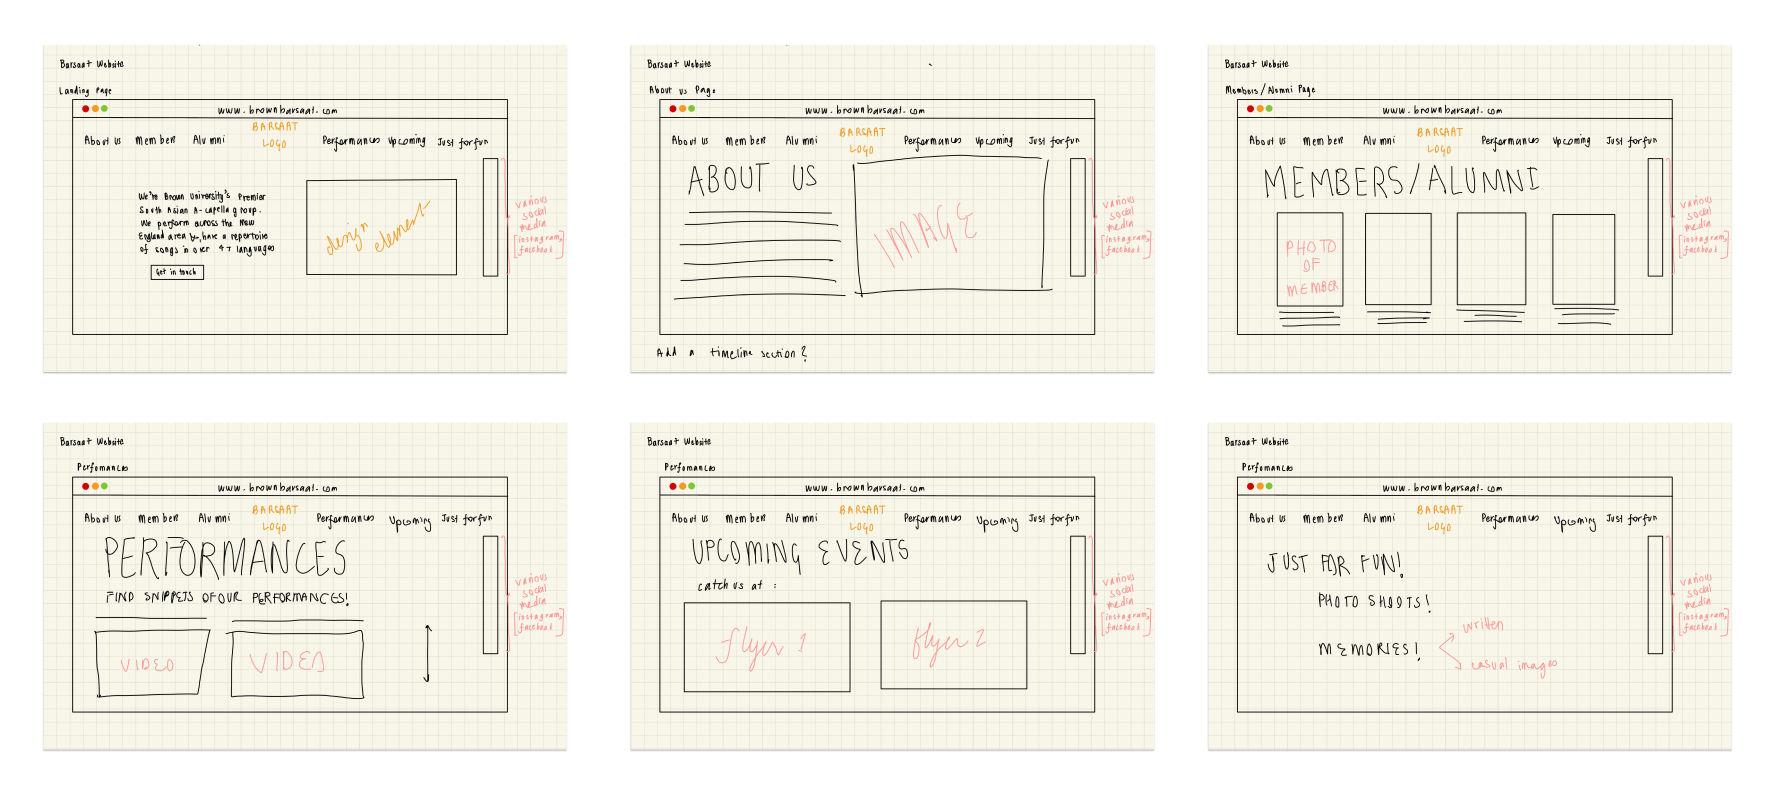 Barsaat Website
Landing Page
www.brownbarsaat.com
About us Members Alumni BARSAAT LOGO Performances Upcoming Just for fun
We're Brown University's Premier
South Asian A-capella group.
We perform across the New
England area & have a repertoire
of songs in over 47 languages
Get in touch
design element
various
social
media
[instagram,
facebook]
Barsaat Website
About us Page
www.brownbarsaat.com
About us Members Alumni BARSAAT LOGO Performances Upcoming Just for fun
ABOUT US
IMAGE
various
social
media
[instagram,
facebook]
Add a timeline section?
Barsaat Website
Members/Alumni Page
www.brownbarsaat.com
About us Members Alumni BARSAAT LOGO Performances Upcoming Just for fun
MEMBERS/ALUMNI
PHOTO
OF
MEMBER
various
social
media
[instagram,
facebook]
Barsaat Website
Perfomances
www.brownbarsaat.com
About us Members Alumni BARSAAT LOGO Performances Upcoming Just for fun
PERFORMANCES
FIND SNIPPETS OF OUR PERFORMANCES!
VIDEO VIDEO
various
social
media
[instagram,
facebook]
Barsaat Website
Perfomances
www.brownbarsaat.com
About us Members Alumni BARSAAT LOGO Performances Upcoming Just for fun
UPCOMING EVENTS
catch us at :
flyer 1 flyer 2
various
social
media
[instagram,
facebook]
Barsaat Website
Perfomances
www.brownbarsaat.com
About us Members Alumni BARSAAT LOGO Performances Upcoming Just for fun
JUST FOR FUN!
PHOTO SHOOTS!
MEMORIES!
written
casual images
various
social
media
[instagram,
facebook]